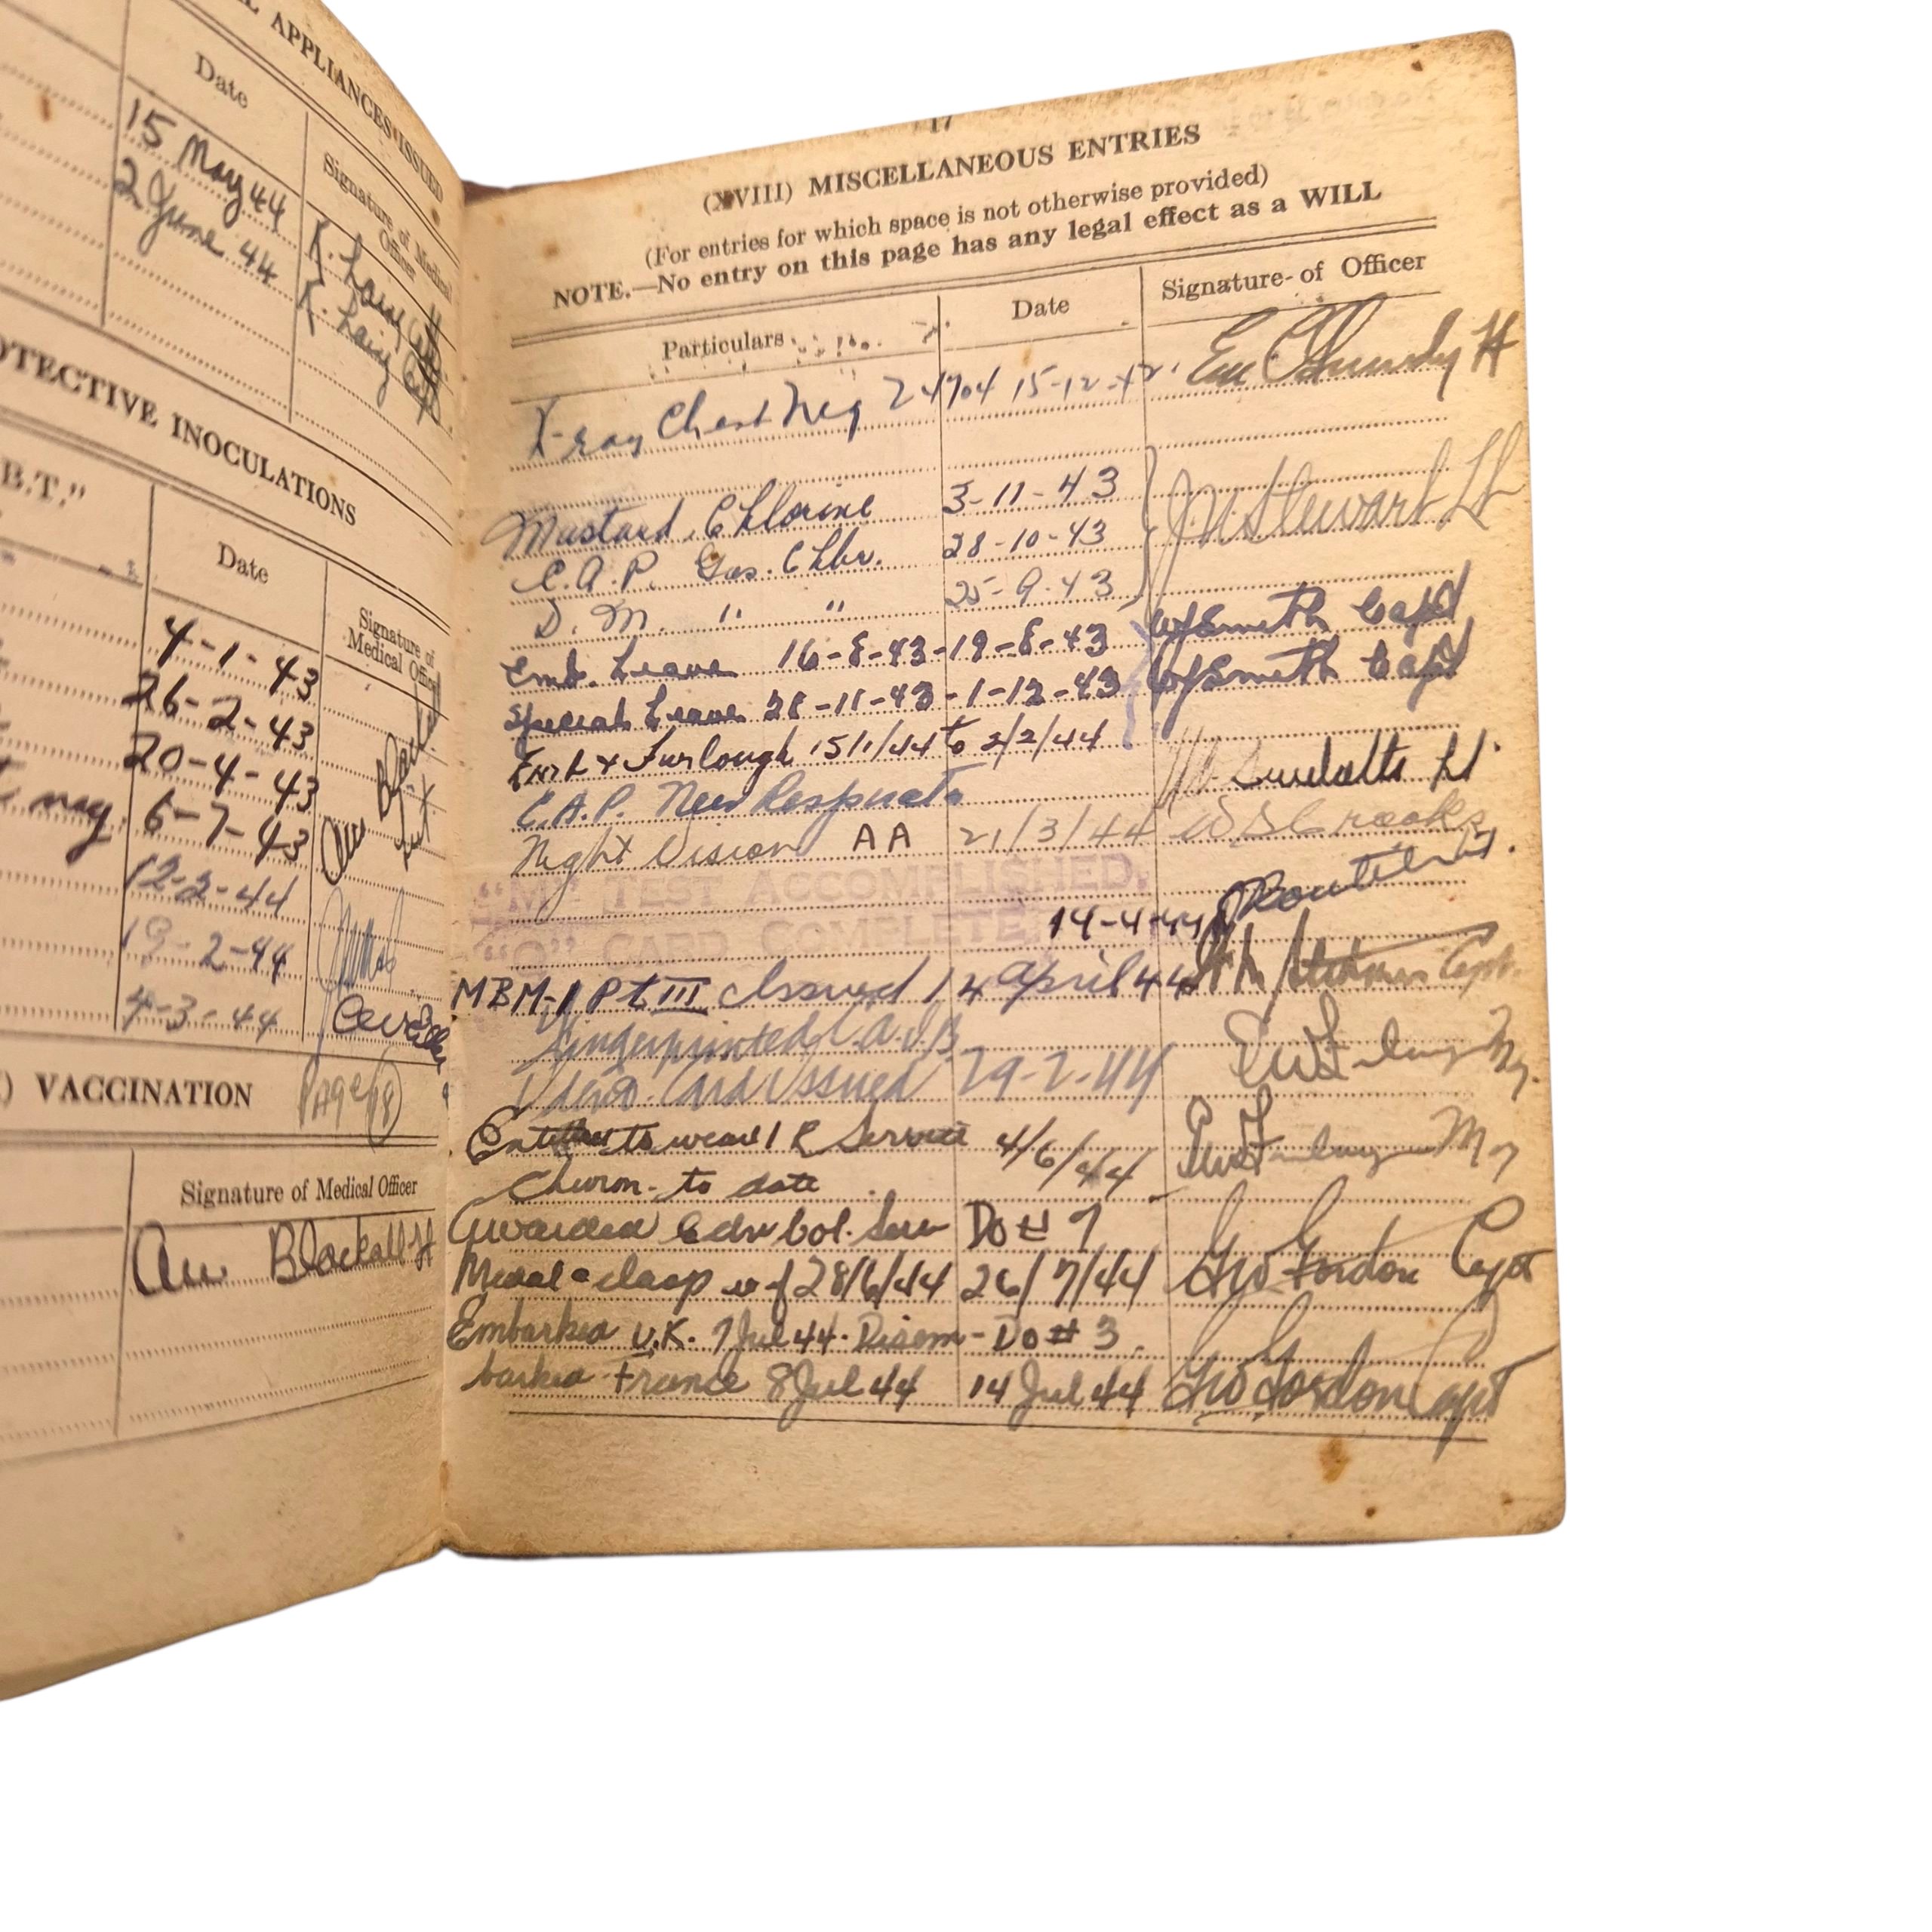 L APPLIANCES ISSUED
Date
Signature of Medical
Officer
15 May 44 K. Laing Capt
2 June 44 K. Laing Capt
OTECTIVE INOCULATIONS
B.T."
Date
Signature of
Medical Offic
4-1-43
26-2-43
20-4-43
may. 6-7-43
12-2-44
19-2-44
4-3-44
Page 18
) VACCINATION
Signature of Medical Officer
Blackall Lt
17
(XVIII) MISCELLANEOUS ENTRIES
(For entries for which space is not otherwise provided)
NOTE.—No entry on this page has any legal effect as a WILL
Particulars Date Signature of Officer
X-ray Chest Neg 24704 15-12-42.
Mustard, Chlorine 3-11-43 Stewart Lt
C.A.P. Gas. Chbr. 28-10-43
D.M. " " 25-9-43
Emb. Leave 16-8-43-19-8-43 Smith Capt
Special Leave 28-11-43-1-12-43 Smith Capt
Furlough 15/1/44 to 2/2/44
C.A.P. New Respirato
Night Vision AA 21/3/44
"M" TEST ACCOMPLISHED.
"O" CARD COMPLETE
14-4-44
MBM-1 Pt III Issued 14 April 44 Capt.
Fingerprinted
Card Issued 29-2-44
Entitled to wear 1 R Service 4/6/44
Chevron to date
Awarded Cdn Vol. Serv DO # 7
Medal & clasp 28/6/44 26/7/44 Gordon Capt
Embarked U.K. 7 Jul 44. Disem- DO # 3
barked France 8 Jul 44 14 Jul 44 Gordon Capt